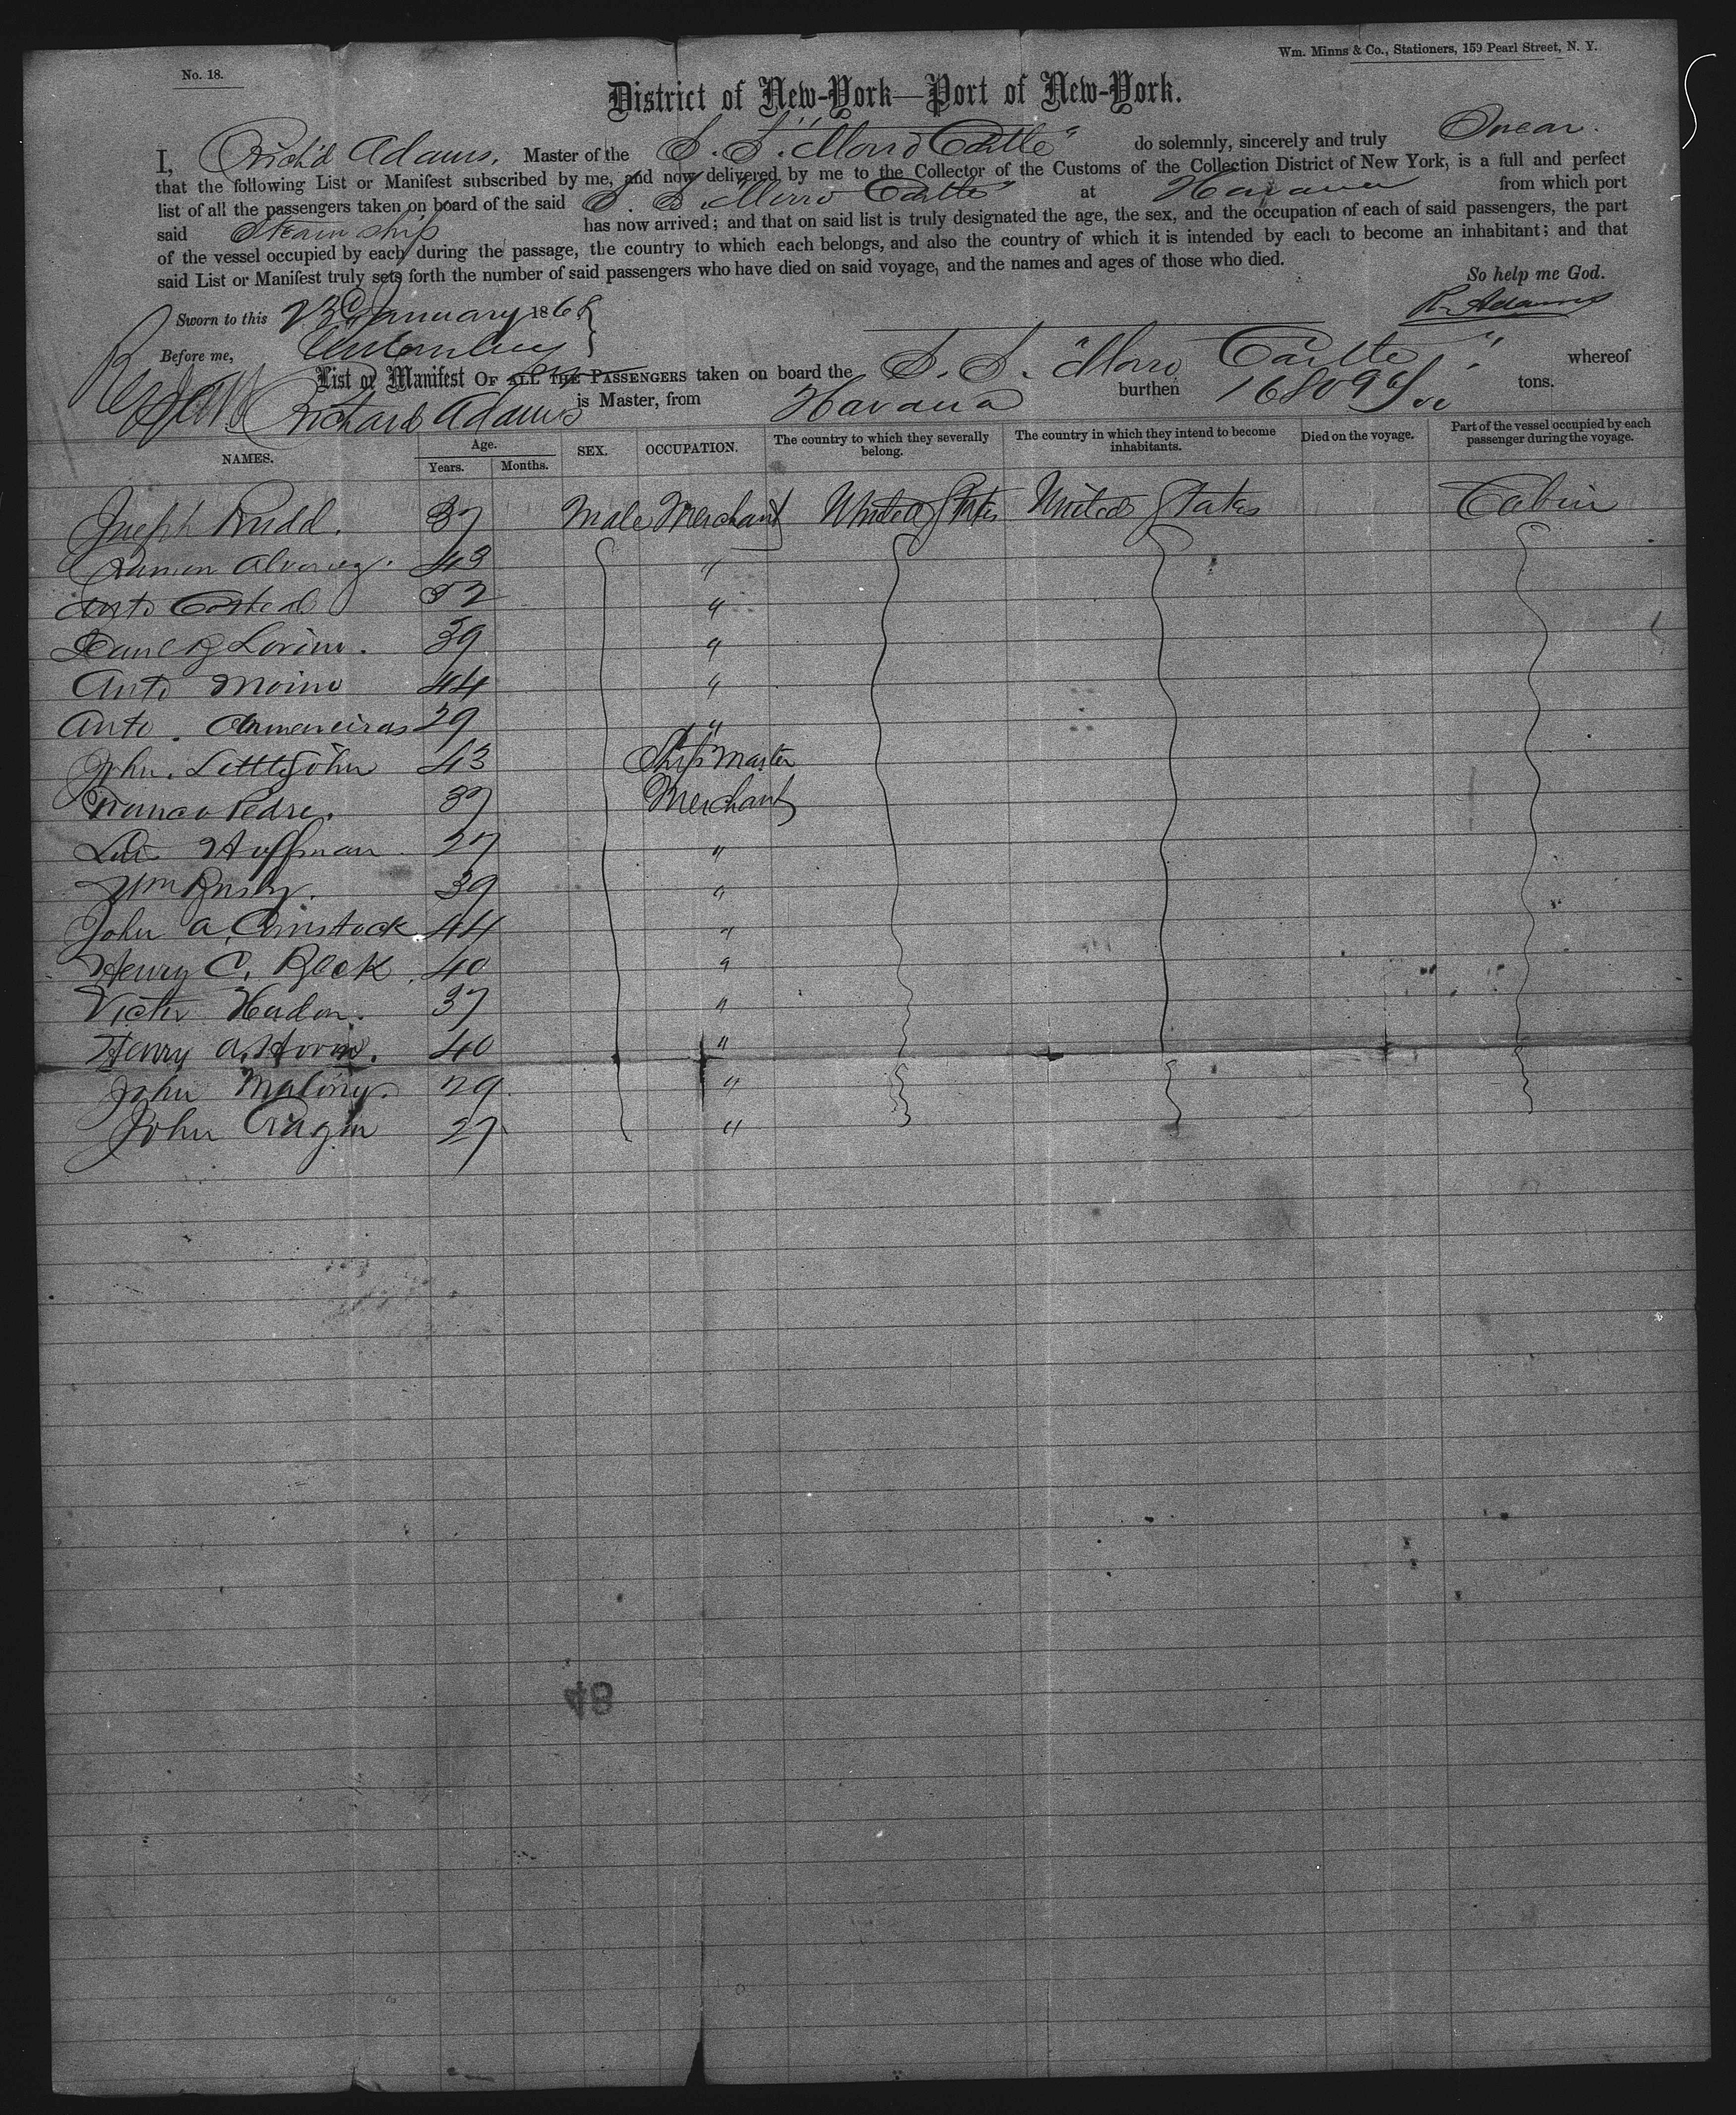 No. 18.
Wm. Minns & Co., Stationers, 159 Pearl Street, N. Y.
District of New-York—Port of New-York.
I, Rich'd Adams, Master of the S. S. "Morro Castle" do solemnly, sincerely and truly Swear.
that the following List or Manifest subscribed by me, and now delivered by me to the Collector of the Customs of the Collection District of New York, is a full and perfect
list of all the passengers taken on board of the said S. S. "Morro Castle" at Havana from which port
said Steam ship has now arrived; and that on said list is truly designated the age, the sex, and the occupation of each of said passengers, the part
of the vessel occupied by each during the passage, the country to which each belongs, and also the country of which it is intended by each to become an inhabitant; and that
said List or Manifest truly sets forth the number of said passengers who have died on said voyage, and the names and ages of those who died.
So help me God.
Sworn to this 23d January 1868
R. Adams
Before me,
List or Manifest OF ALL THE PASSENGERS taken on board the S. S. "Morro Castle" whereof
Richard Adams is Master, from Havana burthen 1680 tons.
NAMES. Age. Years. Months. SEX. OCCUPATION. The country to which they severally belong. The country in which they intend to become inhabitants. Died on the voyage. Part of the vessel occupied by each passenger during the voyage.
Joseph Rudd. 37 Male Merchant United States United States Cabin
Ramon Alvarez. 43 "
Anto 52 "
39 "
Anto 44 "
Anto. 29 "
John. Littlejohn 43 Ship Master
Franco Pedre. 37 Merchant
Huffman 27 "
Wm 39 "
John A. Comstock 44 "
Henry C. Beck 40 "
Victor 37 "
Henry A. 40 "
John Malony. 29 "
John 27 "
48